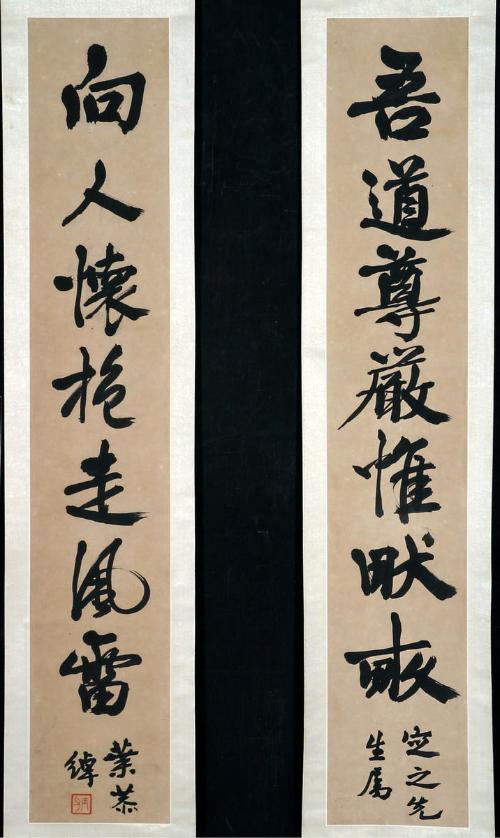 吾道尊嚴惟畎畝
定之先
生属
向人懷抱走風雷
葉恭
綽